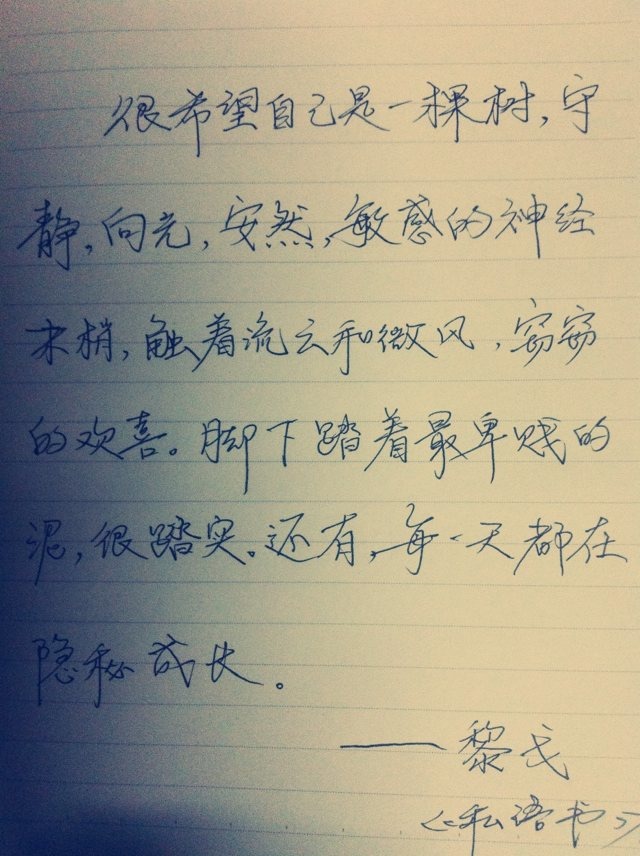 很希望自己是一棵树,守
静,向光,安然,敏感的神经
末梢,触着流云和微风,窃窃
的欢喜。脚下踏着最卑贱的
泥,很踏实。还有,每一天都在
隐秘成长。
——黎戈
《私语书》